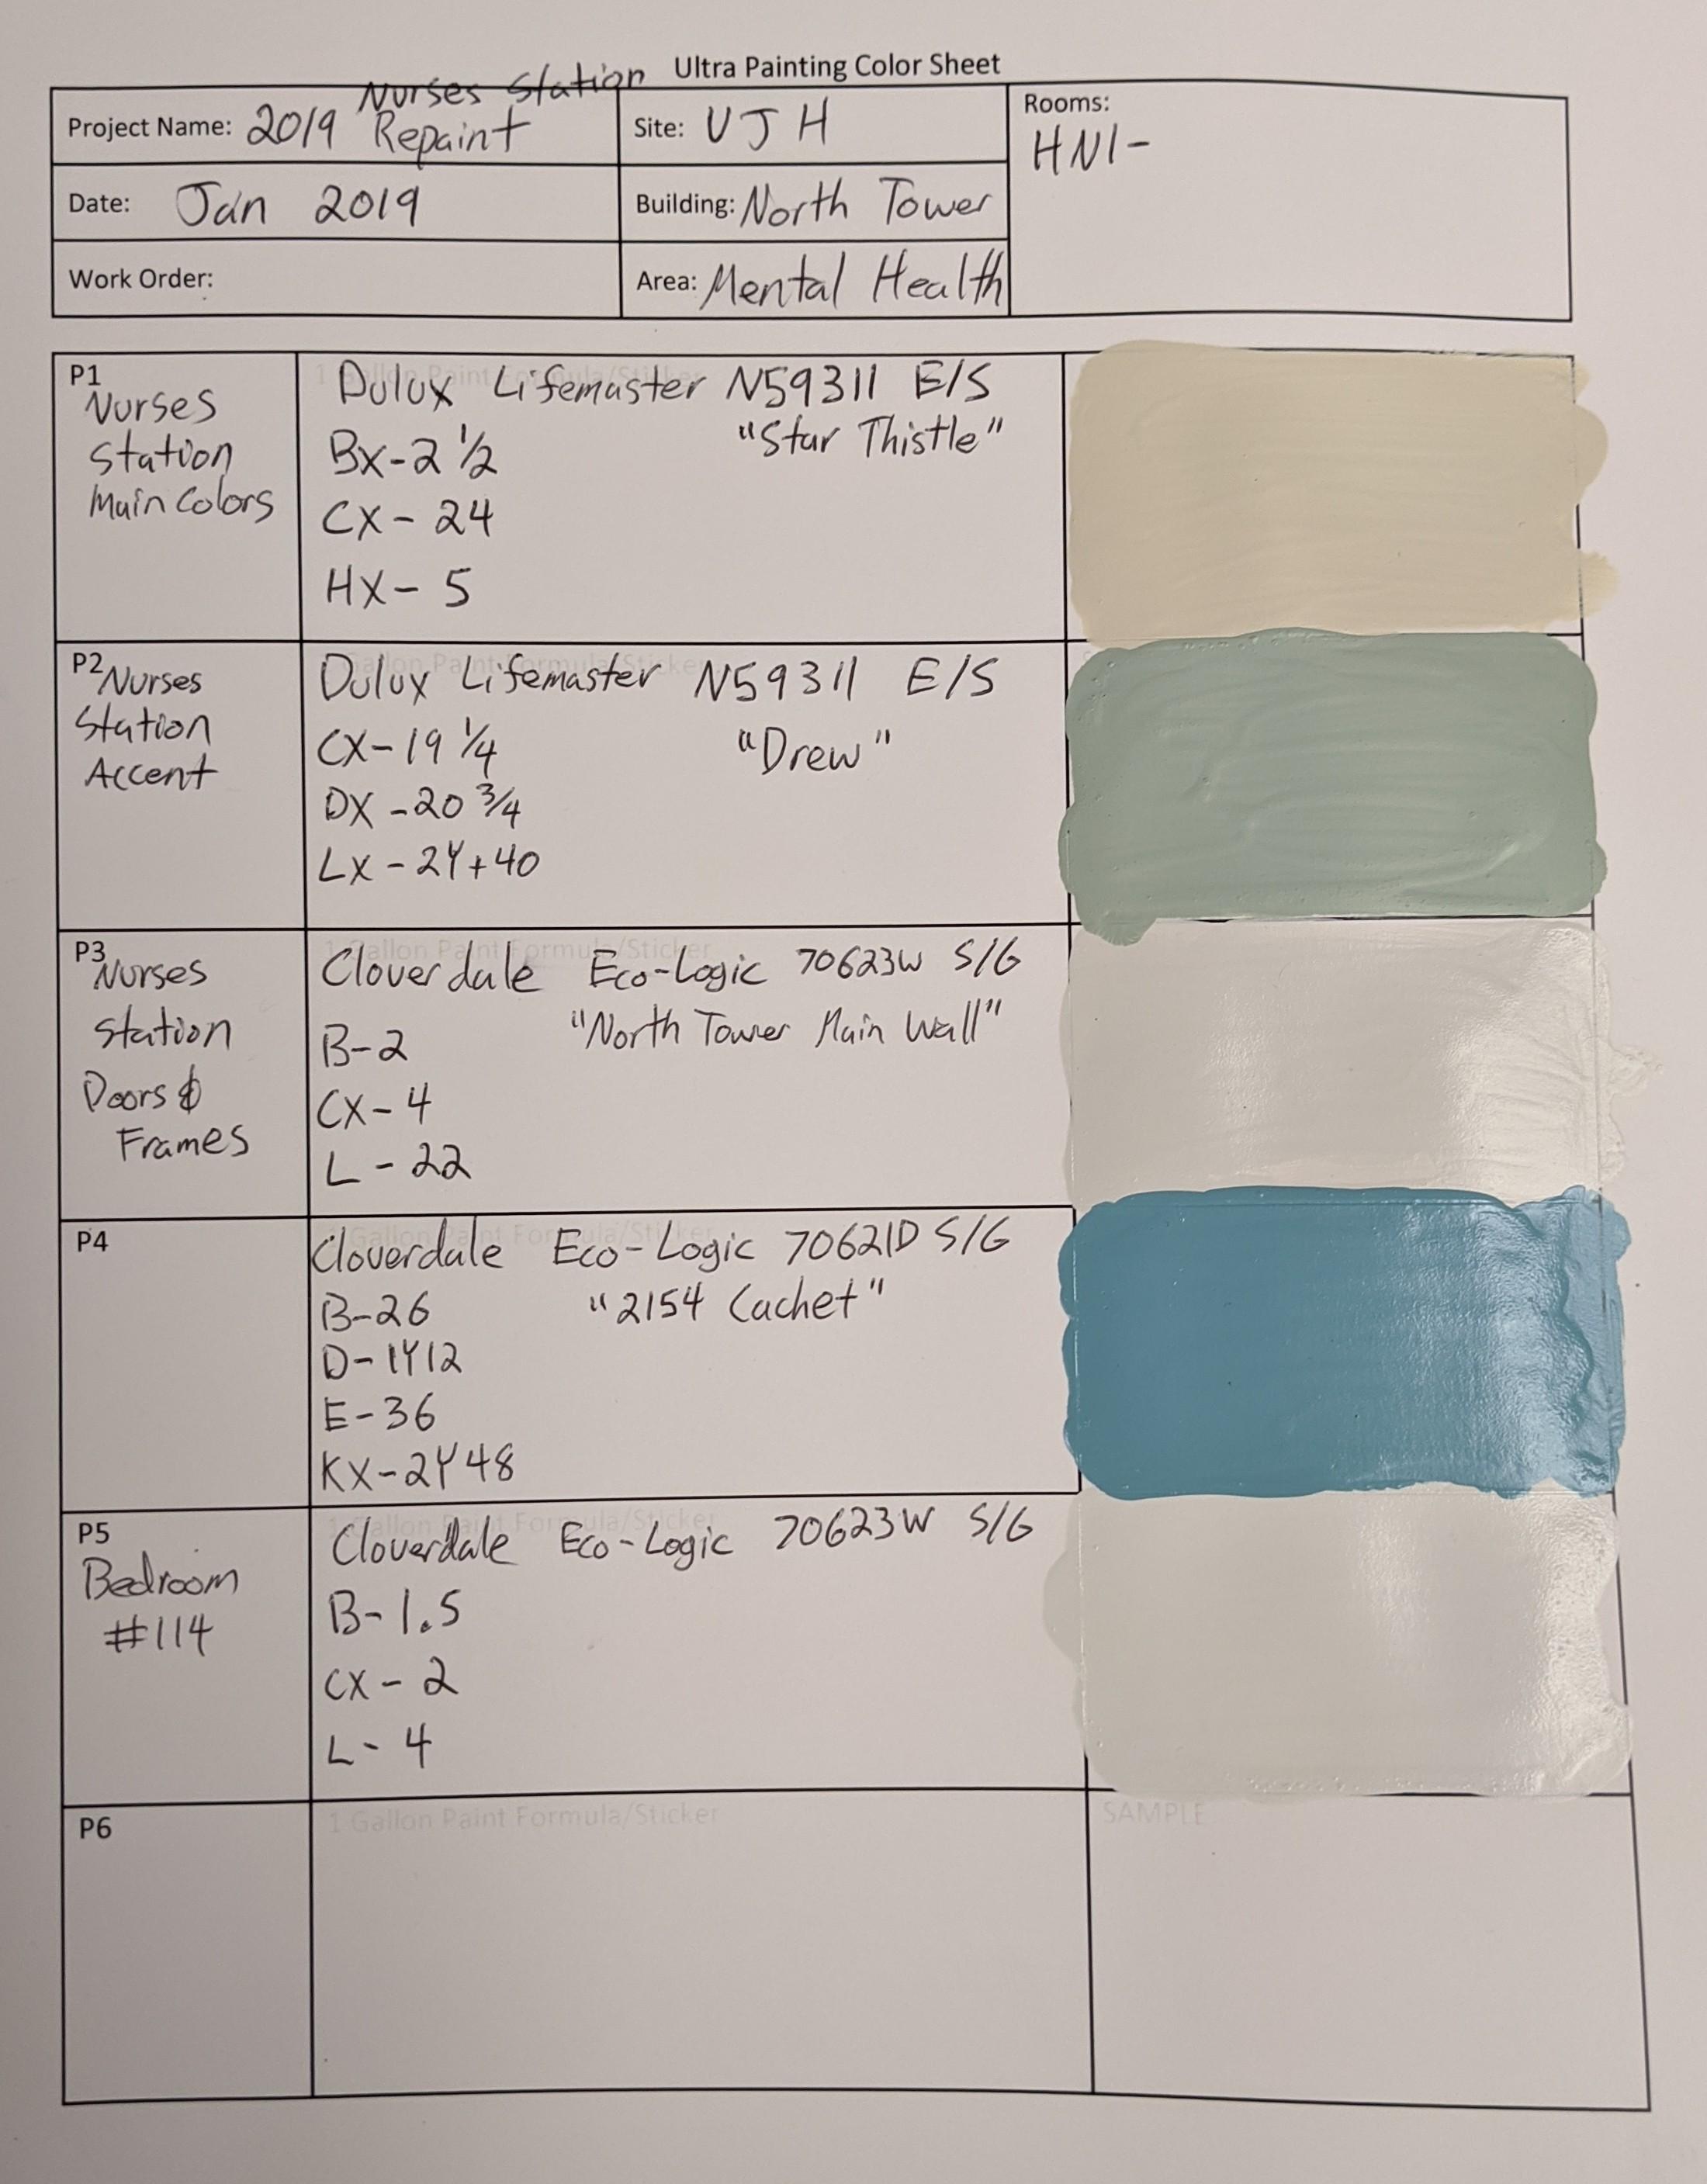 Ultra Painting Color Sheet
Nurses Station
Project Name: 2019 Repaint
Site: UJH
Rooms:
HN1-
Date: Jan 2019
Building: North Tower
Work Order:
Area: Mental Health
P1
Nurses
Station
Main Colors
1 Gallon Paint Formula/Sticker
Dulux Lifemaster N59311 E/S
"Star Thistle"
BX-2 1/2
CX-24
HX-5
P2
Nurses
Station
Accent
Gallon Paint Formula/Sticker
Dulux Lifemaster N59311 E/S
CX-19 1/4 "Drew"
DX-20 3/4
LX-2Y+40
P3
Nurses
Station
Doors &
Frames
1 Gallon Paint Formula/Sticker
Cloverdale Eco-Logic 70623W S/G
"North Tower Main Wall"
B-2
CX-4
L-22
P4
Gallon Paint Formula/Sticker
Cloverdale Eco-Logic 70621D S/G
B-26 "2154 Cachet"
D-1Y12
E-36
KX-2Y48
P5
Bedroom
#114
1 Gallon Paint Formula/Sticker
Cloverdale Eco-Logic 70623W S/G
B-1.5
CX-2
L-4
P6
1 Gallon Paint Formula/Sticker
SAMPLE